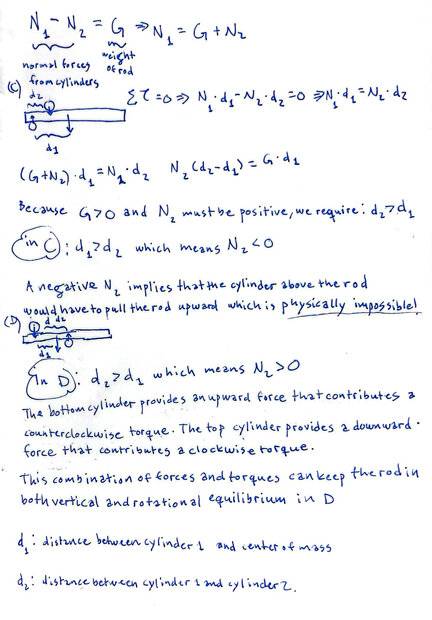 N₁ - N₂ = G ⇒ N₁ = G + N₂
normal forces from cylinders
weight of rod
(C)
d₂
d₁
Στ = 0 ⇒ N₁·d₁ - N₂·d₂ = 0 ⇒ N₁·d₁ = N₂·d₂
(G+N₂)·d₁ = N₂·d₂ N₂(d₂-d₁) = G·d₁
Because G>0 and N₂ must be positive, we require: d₂>d₁
in C: d₁>d₂ which means N₂<0
A negative N₂ implies that the cylinder above the rod
would have to pull the rod upward which is physically impossible!
(D)
d d₂
d₁
In D: d₂>d₁ which means N₂>0
The bottom cylinder provides an upward force that contributes a
counterclockwise torque. The top cylinder provides a downward
force that contributes a clockwise torque.
This combination of forces and torques can keep the rod in
both vertical and rotational equilibrium in D
d₁: distance between cylinder 1 and center of mass
d₂: distance between cylinder 1 and cylinder 2.